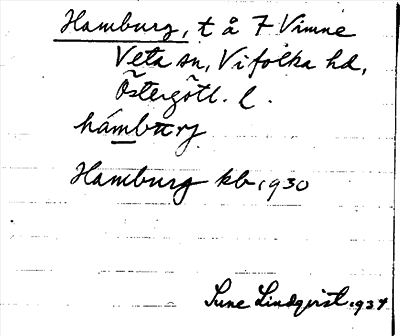 Hamburg, t å 7 Vimne
Veta sn, Vifolka hd,
Östergötl. l.
hámbu̅rj
Hamburg kb. 1930
Sune Lindqvist 1934